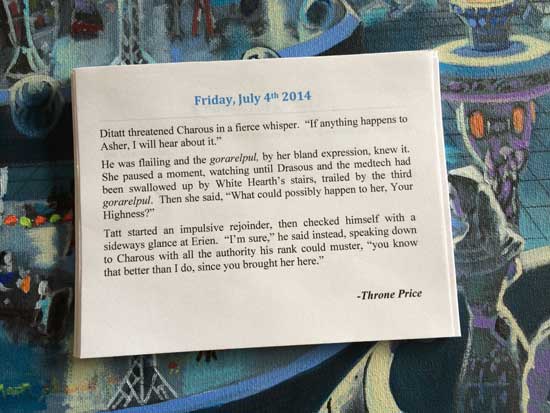 Friday, July 4th 2014
Ditatt threatened Charous in a fierce whisper. “If anything happens to
Asher, I will hear about it.”
He was flailing and the gorarelpul, by her bland expression, knew it.
She paused a moment, watching until Drasous and the medtech had
been swallowed up by White Hearth’s stairs, trailed by the third
gorarelpul. Then she said, “What could possibly happen to her, Your
Highness?”
Tatt started an impulsive rejoinder, then checked himself with a
sideways glance at Erien. “I’m sure,” he said instead, speaking down
to Charous with all the authority his rank could muster, “you know
that better than I do, since you brought her here.”
-Throne Price